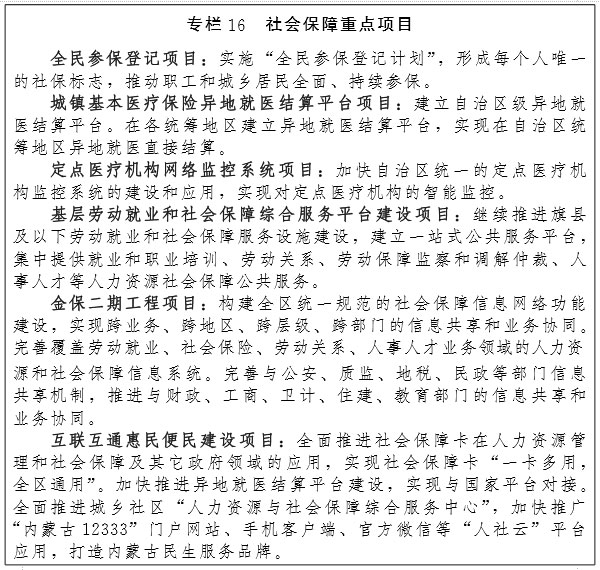 专栏 16 社会保障重点项目
全民参保登记项目：实施“全民参保登记计划”，形成每个人唯一
的社保标志，推动职工和城乡居民全面、持续参保。
城镇基本医疗保险异地就医结算平台项目：建立自治区级异地就
医结算平台。在各统筹地区建立异地就医结算平台，实现在自治区统
筹地区异地就医直接结算。
定点医疗机构网络监控系统项目：加快自治区统一的定点医疗机
构监控系统的建设和应用，实现对定点医疗机构的智能监控。
基层劳动就业和社会保障综合服务平台建设项目：继续推进旗县
及以下劳动就业和社会保障服务设施建设，建立一站式公共服务平台，
集中提供就业和职业培训、劳动关系、劳动保障监察和调解仲裁、人
事人才等人力资源社会保障公共服务。
金保二期工程项目：构建全区统一规范的社会保障信息网络功能
建设，实现跨业务、跨地区、跨层级、跨部门的信息共享和业务协同。
完善覆盖劳动就业、社会保险、劳动关系、人事人才业务领域的人力资
源和社会保障信息系统。完善与公安、质监、地税、民政等部门信息
共享机制，推进与财政、工商、卫计、住建、教育部门的信息共享和
业务协同。
互联互通惠民便民建设项目：全面推进社会保障卡在人力资源管
理和社会保障及其它政府领域的应用，实现社会保障卡“一卡多用，
全区通用”。加快推进异地就医结算平台建设，实现与国家平台对接。
全面推进城乡社区“人力资源与社会保障综合服务中心”，加快推广
“内蒙古 12333”门户网站、手机客户端、官方微信等“人社云”平台
应用，打造内蒙古民生服务品牌。